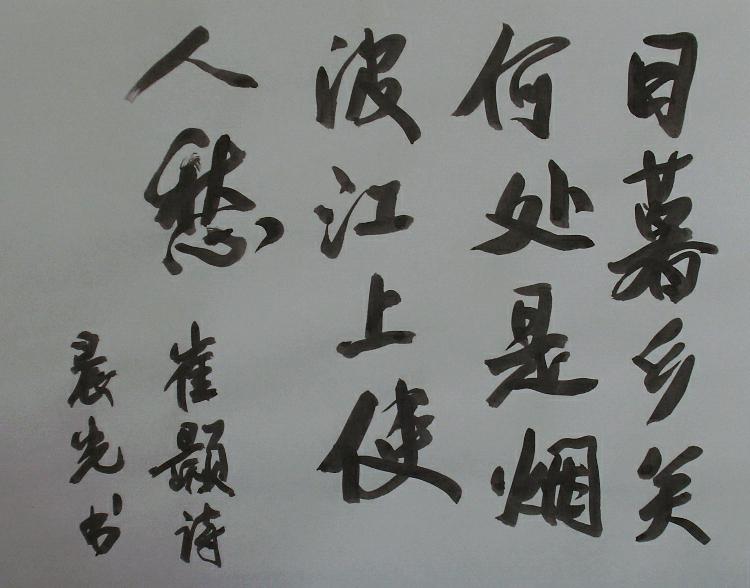 日暮乡关
何处是烟
波江上使
人愁
崔颢诗
晨光书